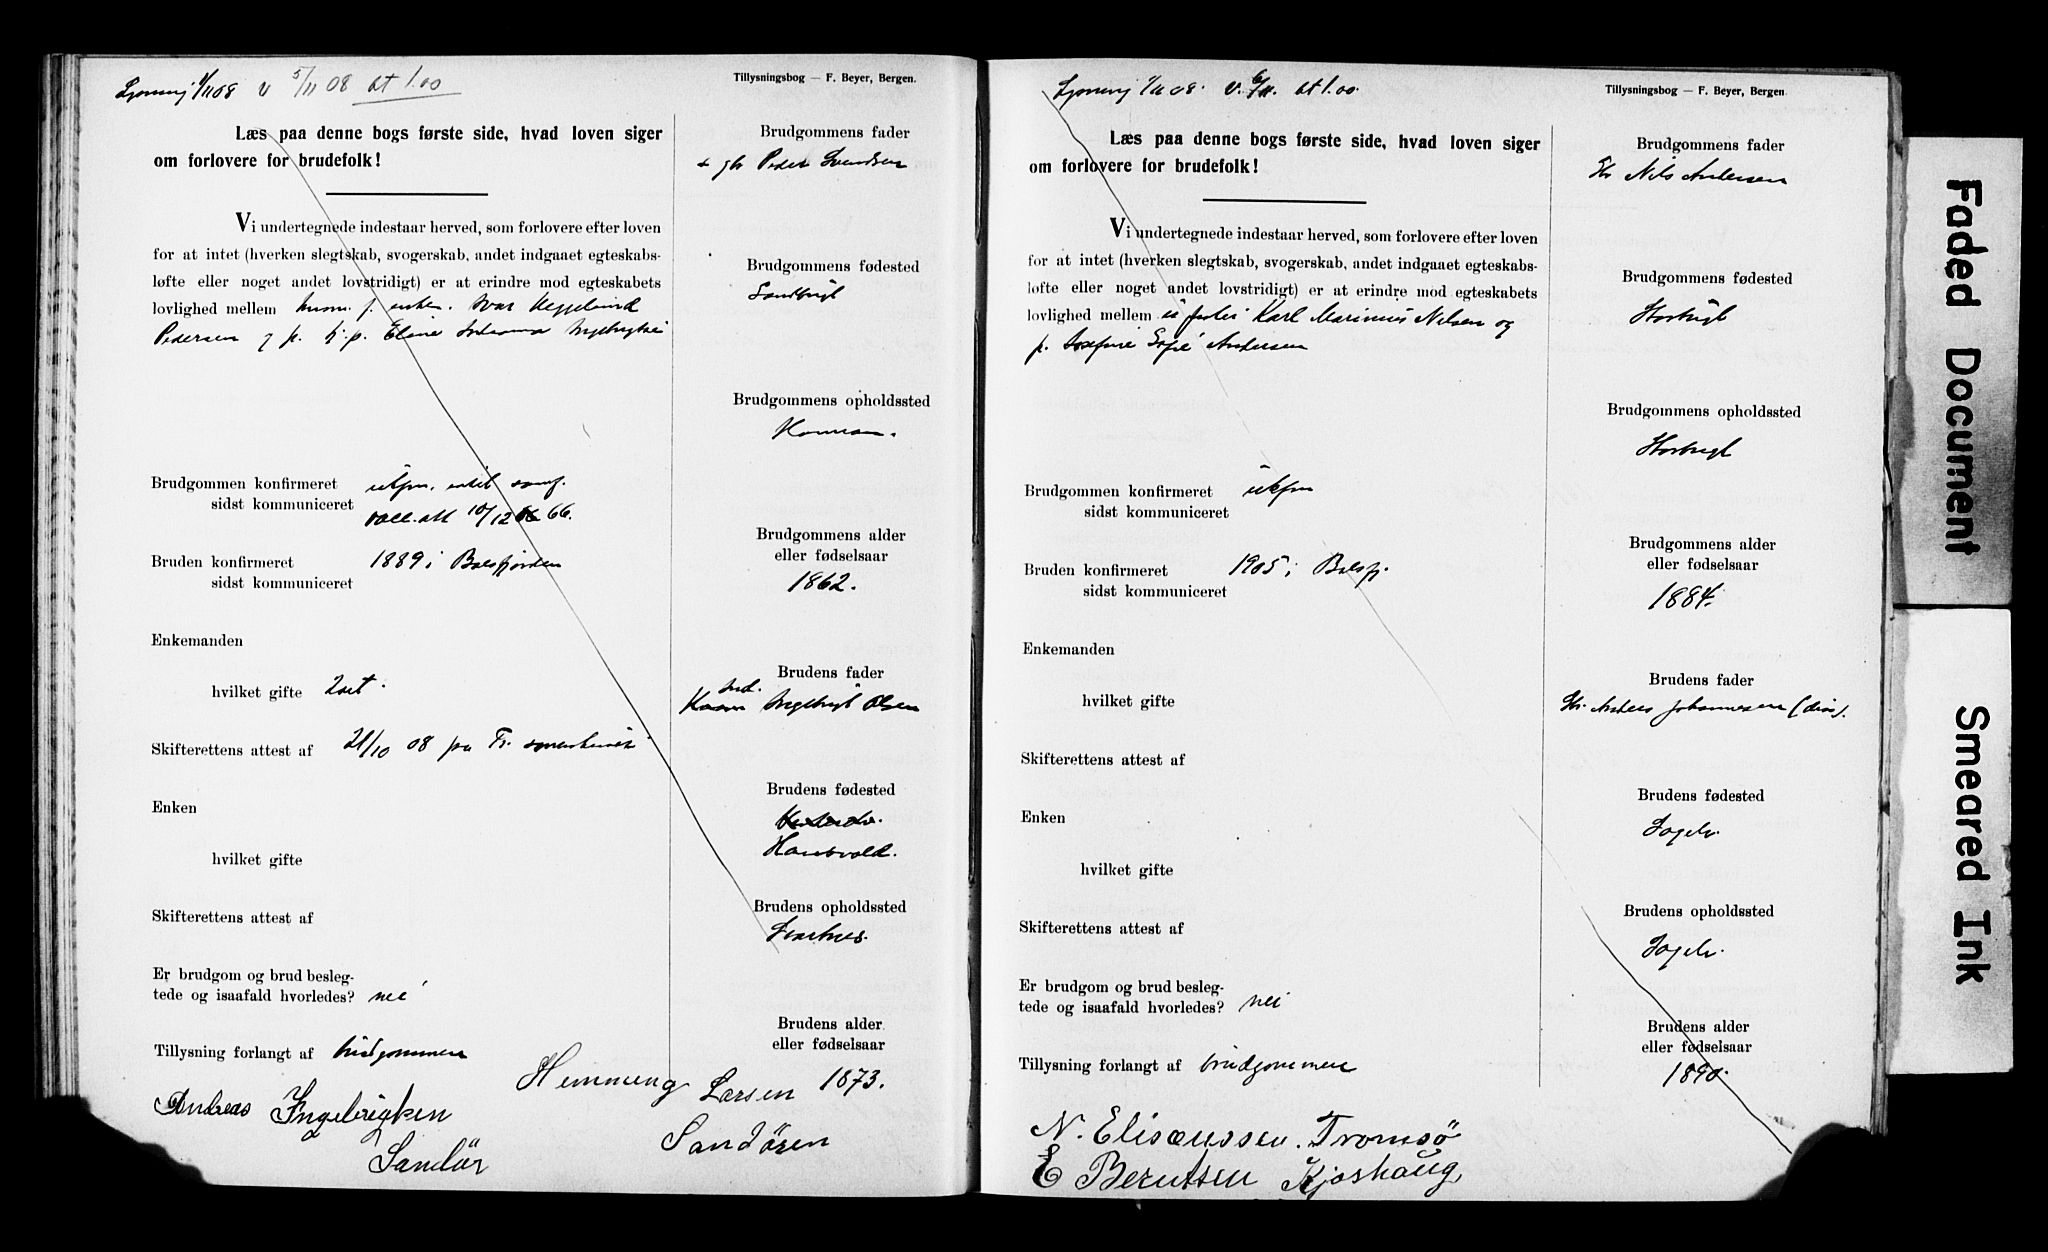 1/11 08 v 5/11 08 bt 1.00
Tillysningsbog — F. Beyer, Bergen.
Læs paa denne bogs første side, hvad loven siger
om forlovere for brudefolk!
Vi undertegnede indestaar herved, som forlovere efter loven
for at intet (hverken slegtskab, svogerskab, andet indgaaet egteskabs-
løfte eller noget andet lovstridigt) er at erindre mod egteskabets
lovlighed mellem
Pedersen
Brudgommen konfirmeret
sidst kommuniceret 10/12 66.
Bruden konfirmeret 1889 i Balsfjorden
sidst kommuniceret
Enkemanden
hvilket gifte 2det
Skifterettens attest af 21/10 08
Enken
hvilket gifte
Skifterettens attest af
Er brudgom og brud besleg-
tede og isaafald hvorledes? nei
Tillysning forlangt af brudgommen
Brudgommens fader
Peder Svendsen
Brudgommens fødested
Brudgommens opholdssted
Brudgommens alder
eller fødselsaar
1862.
Brudens fader
Ingebrigt Olsen
Brudens fødested
Brudens opholdssted
Svartnes.
Brudens alder
eller fødselsaar
1873.
Hemming Larsen
Sandøren
Andreas Ingebrigtsen
Sandör
1/11 08. v. 6/11. bt 1.00.
Tillysningsbog — F. Beyer, Bergen.
Læs paa denne bogs første side, hvad loven siger
om forlovere for brudefolk!
Vi undertegnede indestaar herved, som forlovere efter loven
for at intet (hverken slegtskab, svogerskab, andet indgaaet egteskabs-
løfte eller noget andet lovstridigt) er at erindre mod egteskabets
lovlighed mellem Karl Marinius Nilsen og
p. Josefine Sofie Andersen
Brudgommen konfirmeret
sidst kommuniceret
Bruden konfirmeret 1905 i Balsfj.
sidst kommuniceret
Enkemanden
hvilket gifte
Skifterettens attest af
Enken
hvilket gifte
Skifterettens attest af
Er brudgom og brud besleg-
tede og isaafald hvorledes? nei
Tillysning forlangt af brudgommen
Brudgommens fader
Nils Andersen
Brudgommens fødested
Brudgommens opholdssted
Brudgommens alder
eller fødselsaar
1884.
Brudens fader
Anders Johannesen
Brudens fødested
Sagelv.
Brudens opholdssted
Sagelv.
Brudens alder
eller fødselsaar
1890.
N. Elisæussen. Tromsö
E Berntsen Kjoshaug,
Faded Document
Smeared Ink